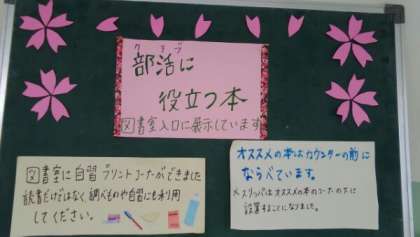 クラブ
部活に
役立つ本
図書室入口に展示しています
図書室に自習プリントコーナーができました
読書だけではなく調べものや自習にも利用
してください。
オススメの本はカウンターの前に
ならべています。
スリッパはオススメの本のコーナーの下に
設置することになりました。